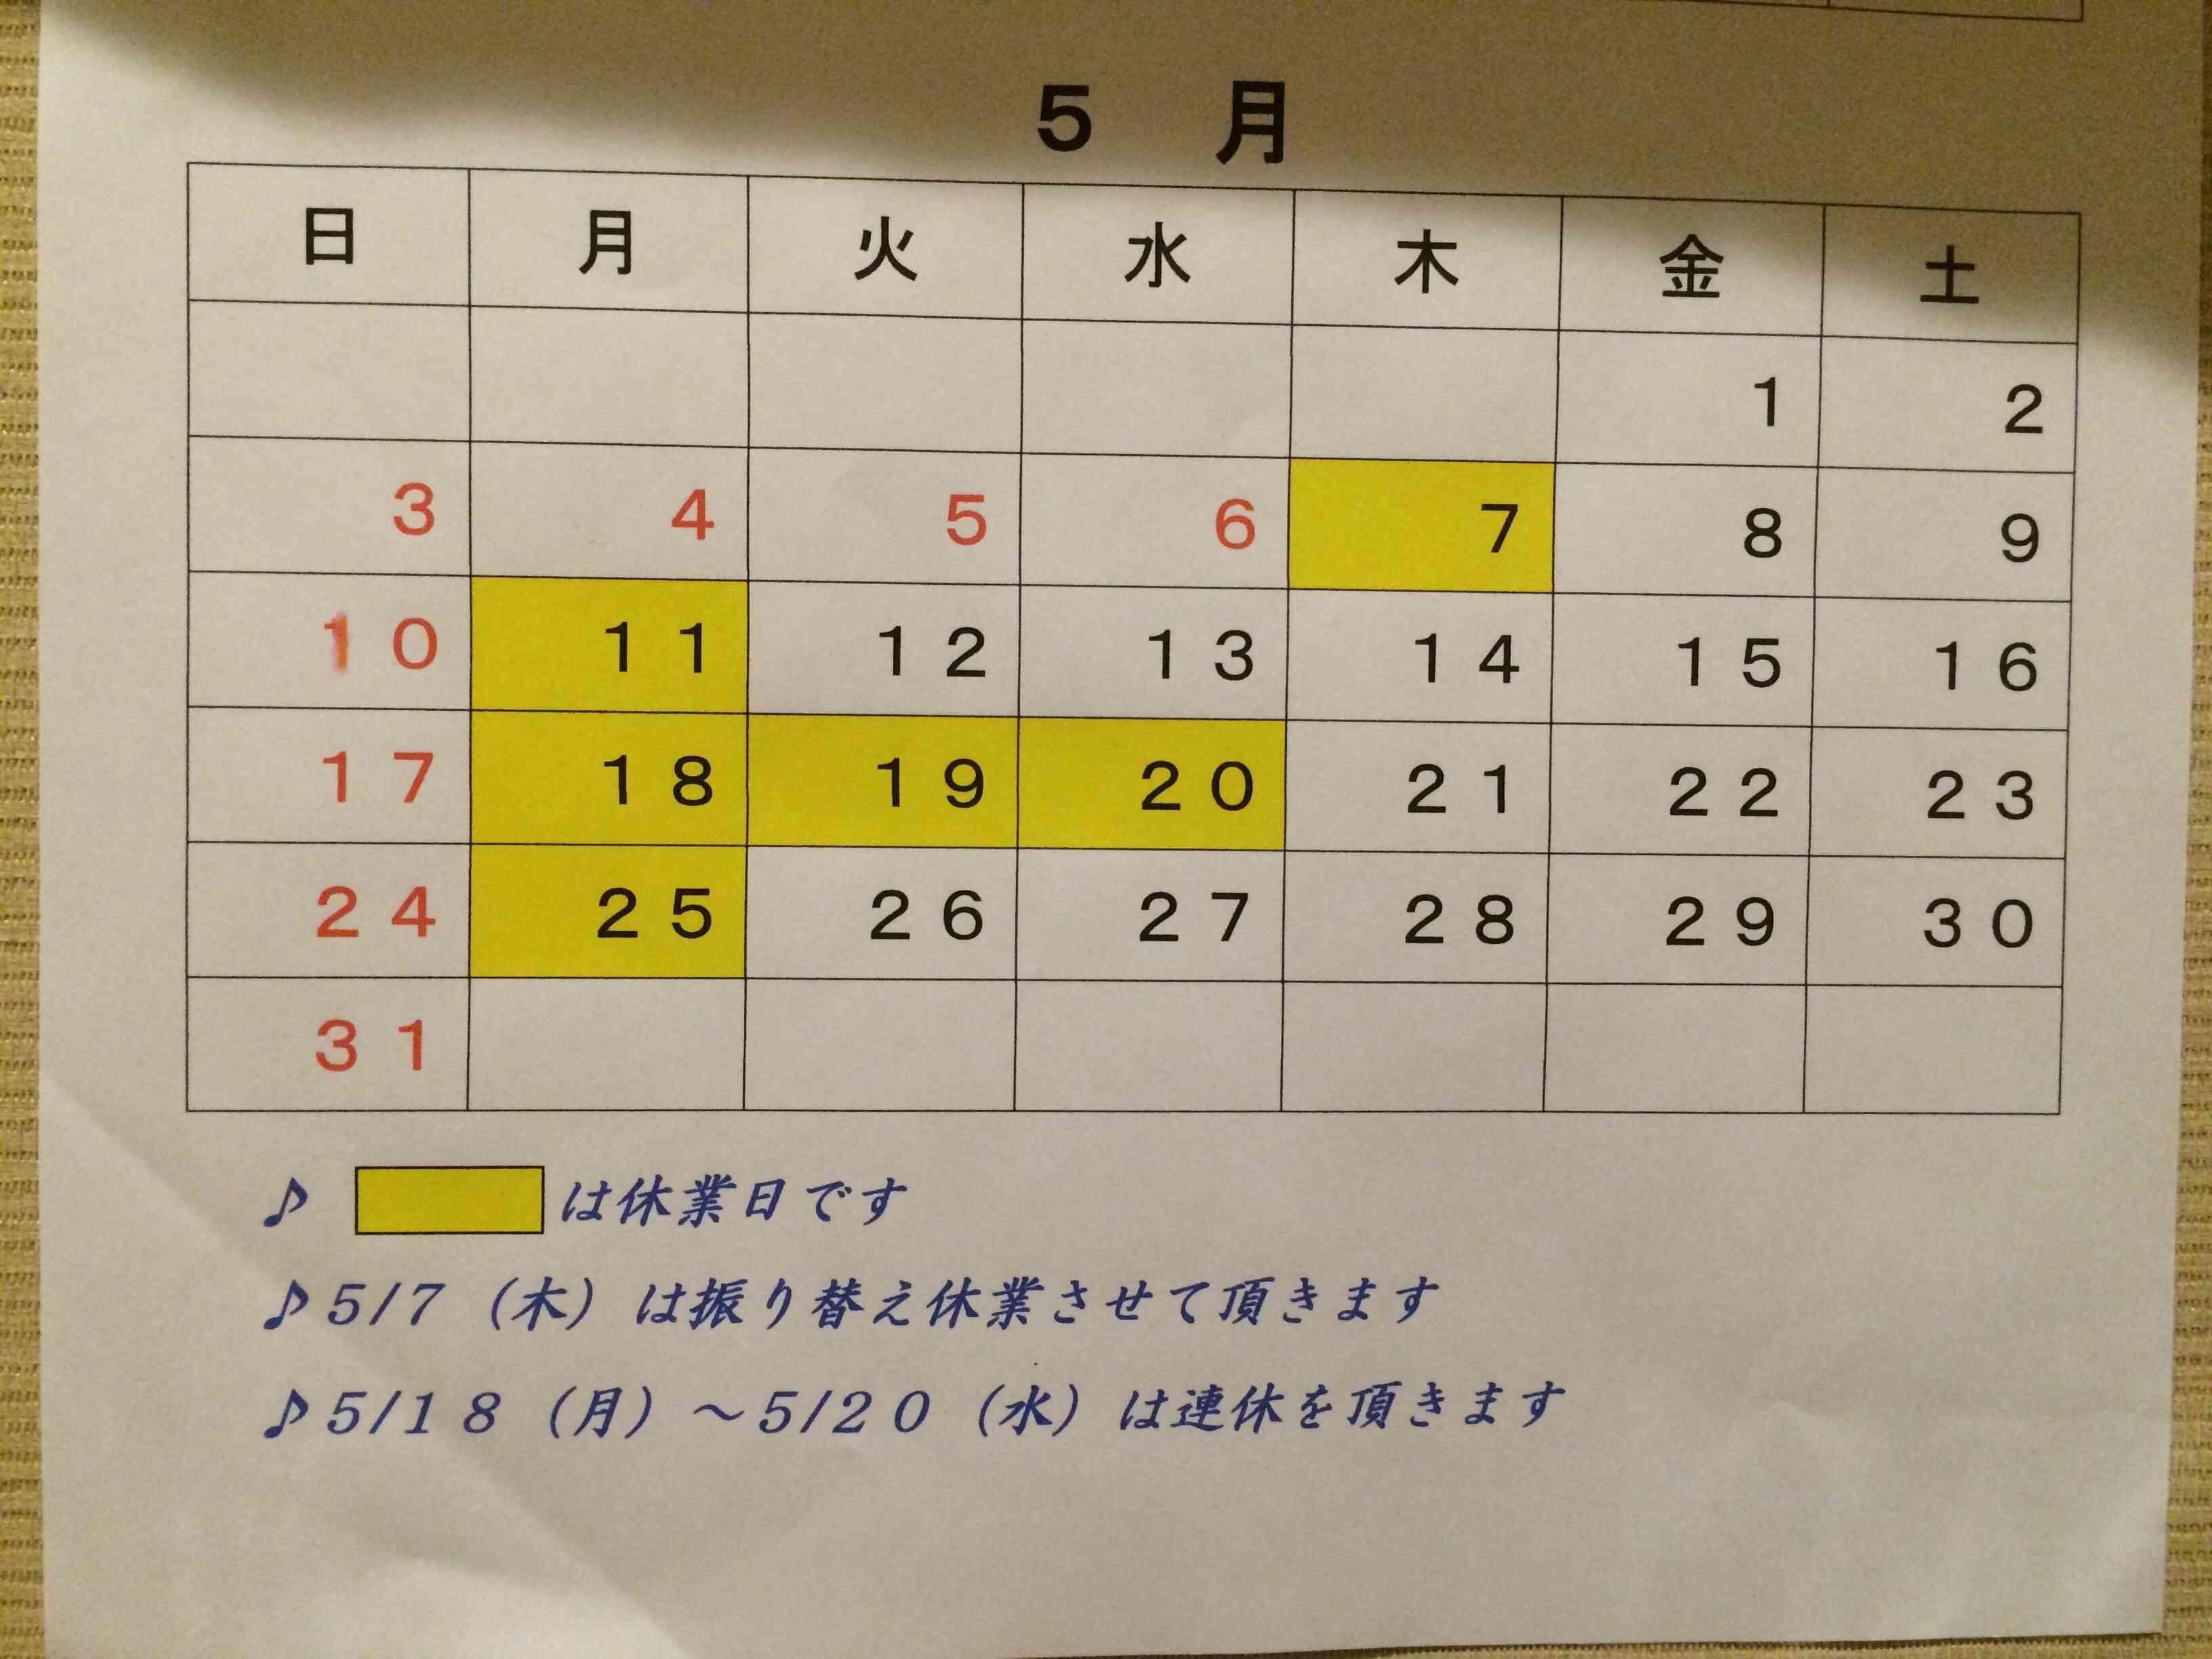 ５　月
日 月 火 水 木 金 土
１ ２
３ ４ ５ ６ ７ ８ ９
１０ １１ １２ １３ １４ １５ １６
１７ １８ １９ ２０ ２１ ２２ ２３
２４ ２５ ２６ ２７ ２８ ２９ ３０
３１
♪ は休業日です
♪５/７（木）は振り替え休業させて頂きます
♪５/１８（月）～５/２０（水）は連休を頂きます